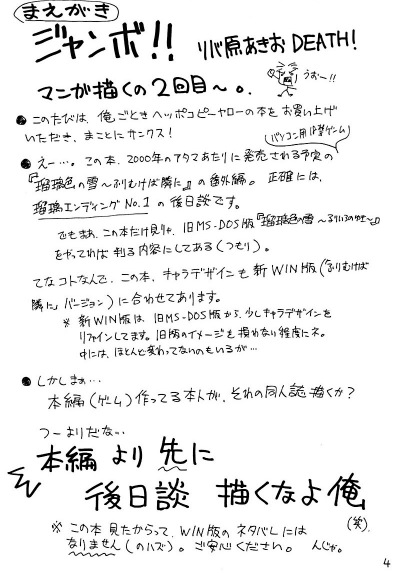 まえがき
ジャンボ!! リバ原あきお DEATH!
マンガ描くの2回目〜。
うおー!!
●このたびは、俺ごときヘッポコピーヤローの本をお買い上げ
いただき、まことにサンクス!
パソコン用18禁ゲーム
●えー…。この本、2000年のアタマあたりに発売される予定の
『瑠璃色の雪〜ふりむけば隣に』の番外編。正確には、
瑠璃エンディングNo.1の後日談です。
でもまぁ、この本だけ見りゃ、旧MS-DOS版『瑠璃色の雪〜
をやってれば判る内容にしてある(つもり)。
てなコトなんで、この本、キャラデザインも新WIN版(『ふりむけば
隣に』バージョン)に合わせてあります。
※新WIN版は、旧MS-DOS版から、少しキャラデザインを
リファインしてます。旧版のイメージを損わない程度にネ。
中には、ほとんど変わってないのもいるが…
●しかしまぁ…
本編(ゲーム)作ってる本人が、それの同人誌描くか?
つーよりだな…
本編より先に
後日談 描くなよ俺
(笑).
※この本見たからって、WIN版のネタバレには
なりません(のハズ)。ご安心ください。 んじゃ。
4